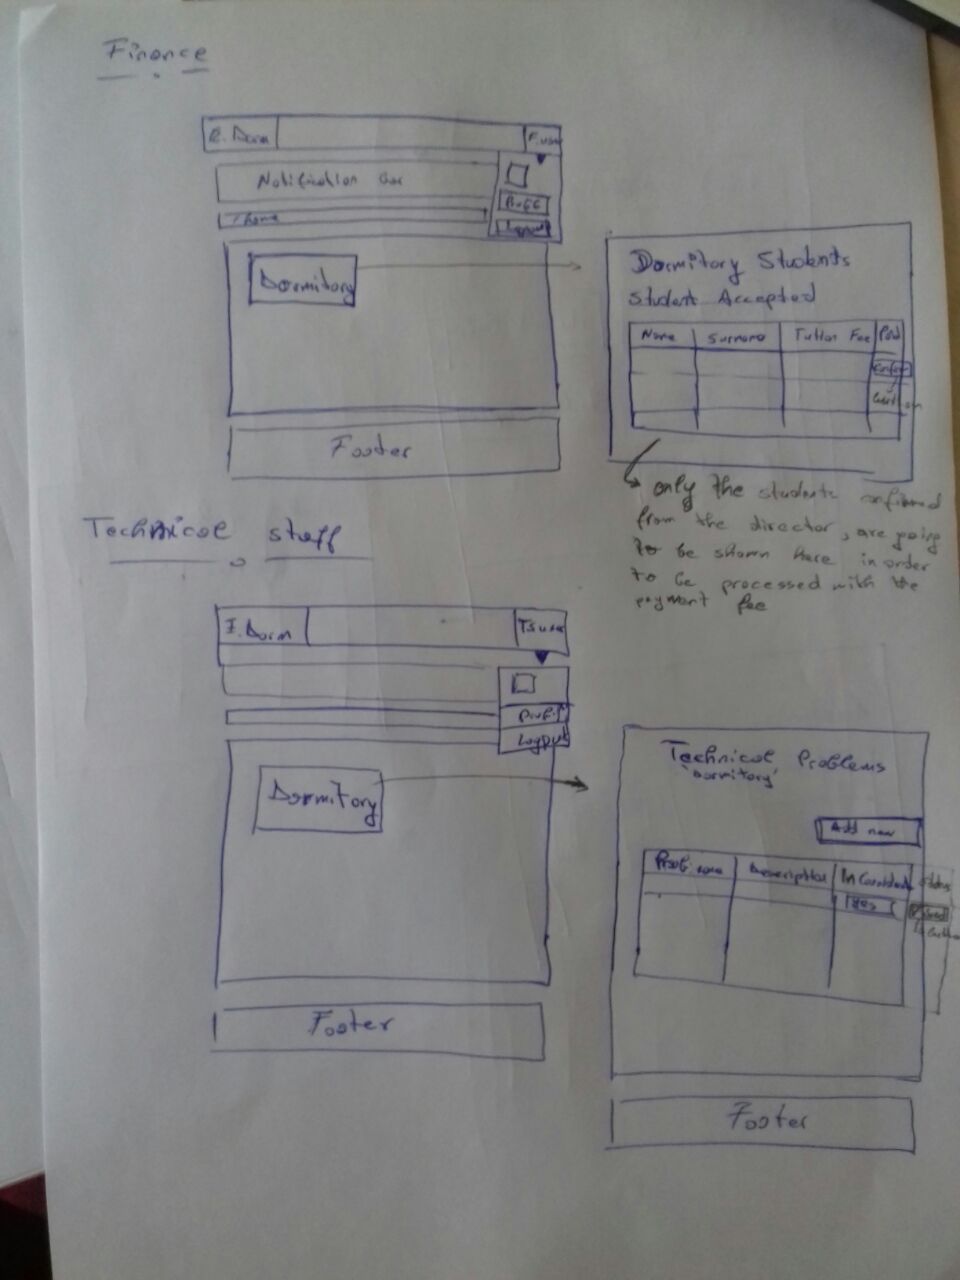 Finance
E.Dorm
F.user
Notification Bar
Home
Logout
Dormitory
Footer
Dormitory Students
Student Accepted
Name Surname Tution Fee Paid
only the students confirmed
from the director, are going
to be shown here in order
to be processed with the
payment fee
Technical staff
E.Dorm
TSuser
Profil
Logout
Dormitory
Footer
Technical Problems
'Dormitory'
Add new
Description
Yes
Footer